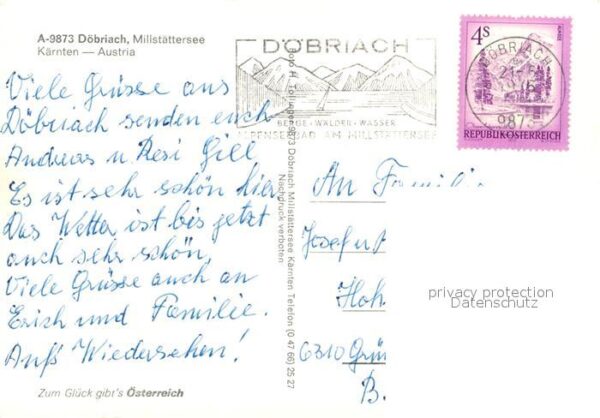 A-9873 Döbriach, Millstättersee
Kärnten — Austria
Viele Grüsse aus
Döbriach senden euch
Andreas u. Resi Gill,
Es ist sehr schön hier,
Das Wetter ist bis jetzt
auch sehr schön,
Viele Grüsse auch an
Erich und Familie.
Auf's Wiedersehen!
Zum Glück gibt's Österreich
DÖBRIACH
BERGE • WÄLDER • WASSER
ALPENSEEBAD AM MILLSTÄTTERSEE
9873 Döbriach Millstättersee Kärnten Telefon (0 47 66) 25 27
Nachdruck verboten
4S
REPUBLIK ÖSTERREICH
DÖBRIACH
987
An Famili
Josef u
Hoh
6310 Grün
B.
privacy protection
Datenschutz